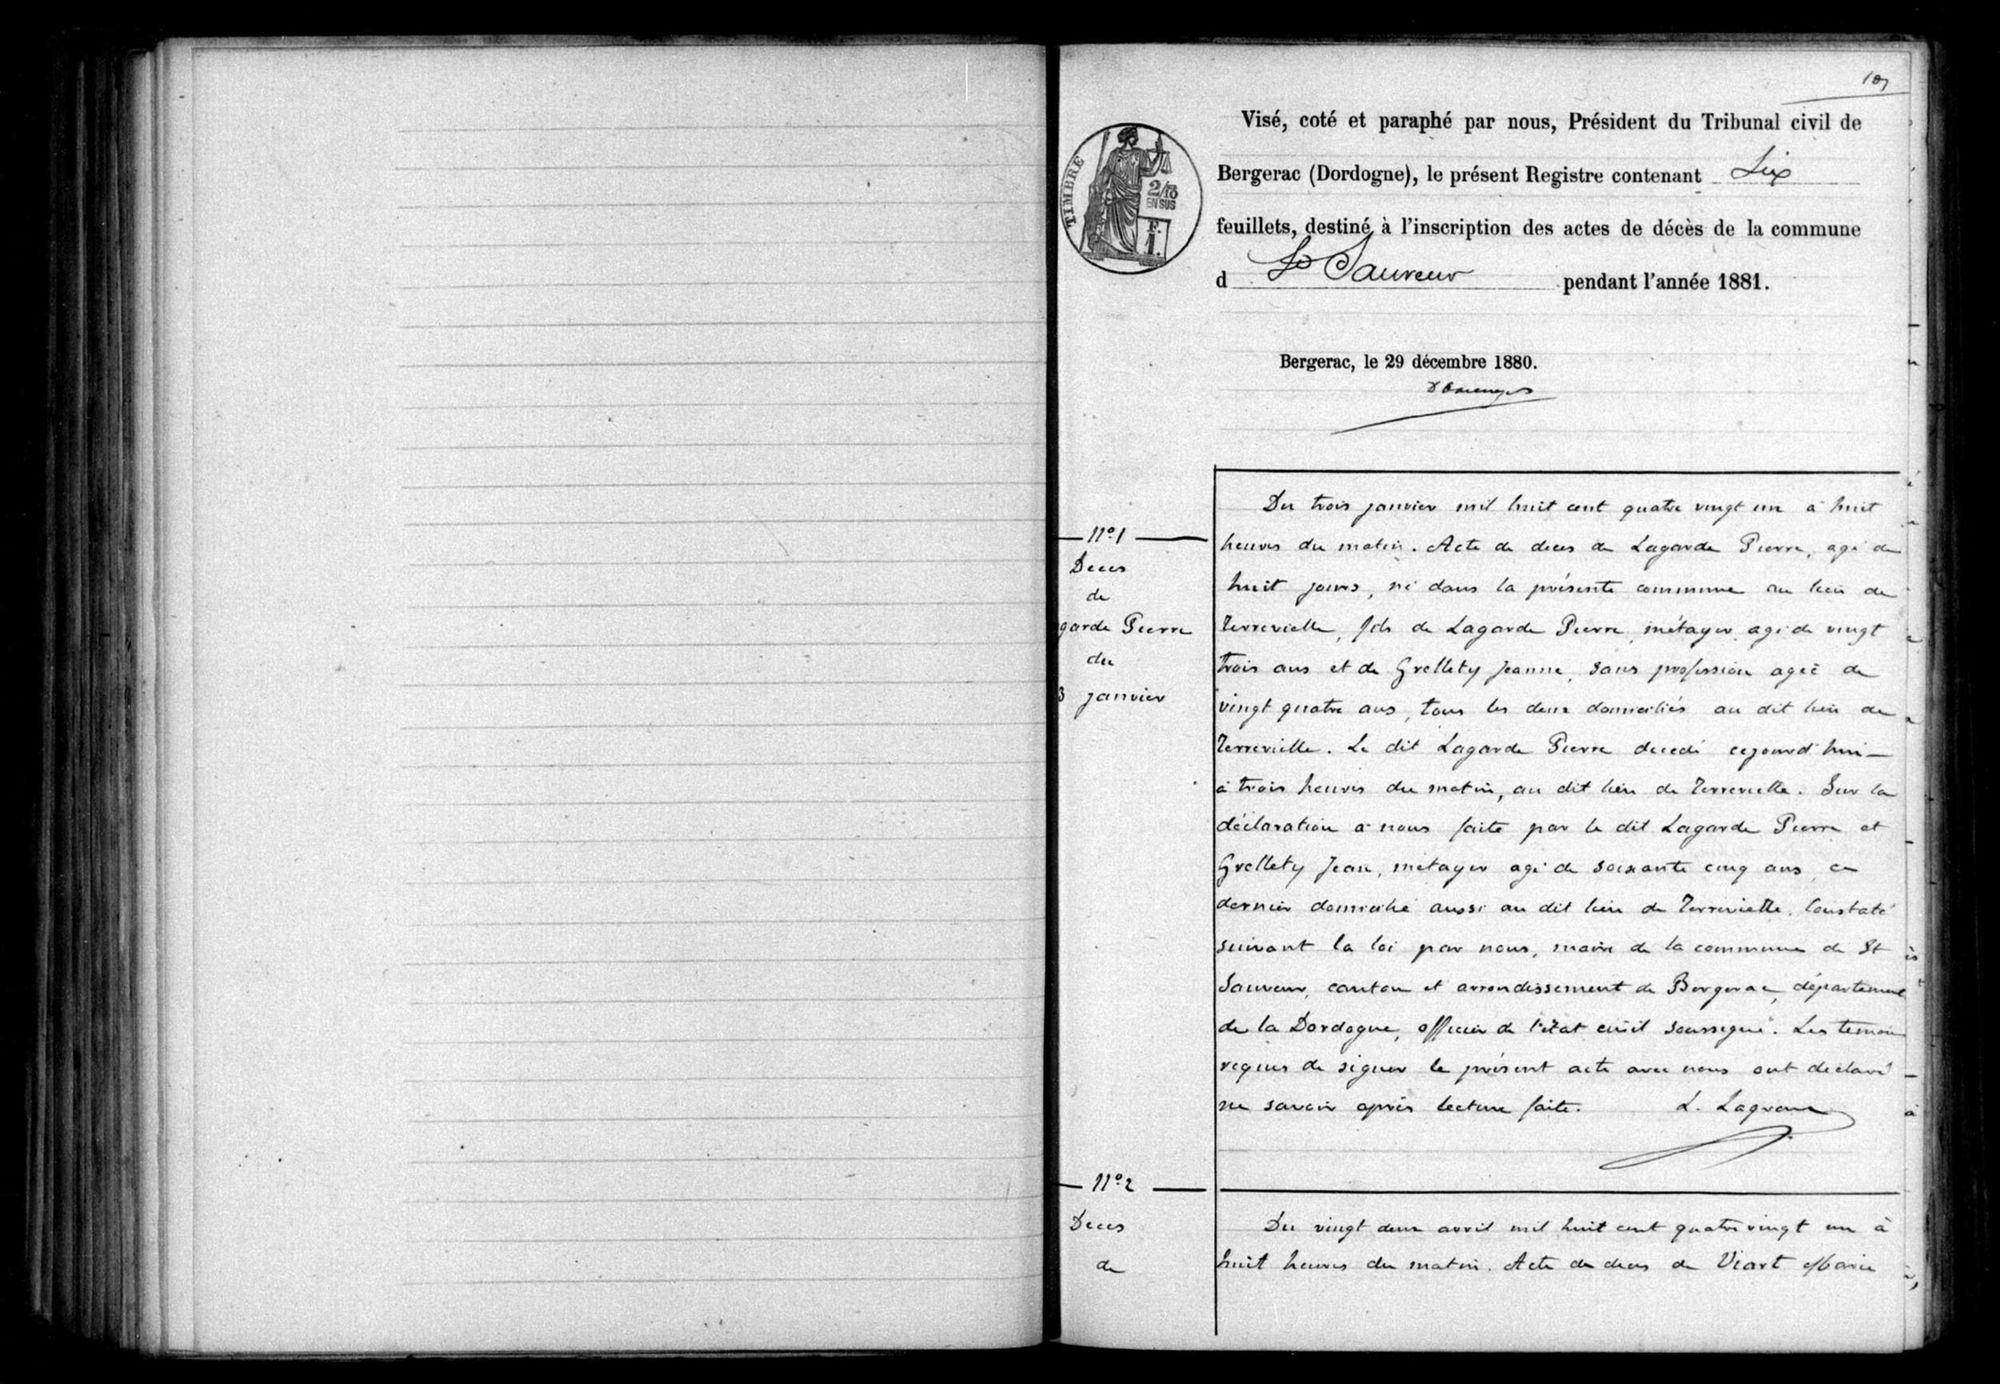 Visé, coté et paraphé par nous, Président du Tribunal civil de
Bergerac (Dordogne), le présent Registre contenant Six
feuillets, destiné à l'inscription des actes de décès de la commune
d St Sauveur pendant l'année 1881.
TIMBRE
2/10
EN SUS
F.
1.
Bergerac, le 29 décembre 1880.
N°1
Deces
de
garde Pierre
du
3 janvier
Du trois janvier mil huit cent quatre vingt un à huit
heures du matin. Acte de deces de Lagarde Pierre, agé de
huit jours, né dans la présente commune au lieu de
Terrevielle, fils de Lagarde Pierre, métayer, agé de vingt
trois ans et de Grellety Jeanne, sans profession agée de
vingt quatre ans, tous les deux domiciliés au dit lieu de
Terrevielle. Le dit Lagarde Pierre decedé cejourd'hui
à trois heures du matin, au dit lieu de Terrevielle. Sur la
déclaration à nous faite par le dit Lagarde Pierre et
Grellety Jean, métayer agé de soixante cinq ans, ce
dernier domicilié aussi au dit lieu de Terrevielle. Constaté
suivant la loi par nous, maire de la commune de St
Sauveur, canton et arrondissement de Bergerac, département
de la Dordogne, officier de l'état civil soussigné. Les temoins
requis de signer le présent acte avec nous ont déclaré
ne savoir après lecture faite. L. Lagrave
N°2
Deces
de
Du vingt deux avril mil huit cent quatre vingt un à
huit heures du matin. Acte de deces de Viart Marie